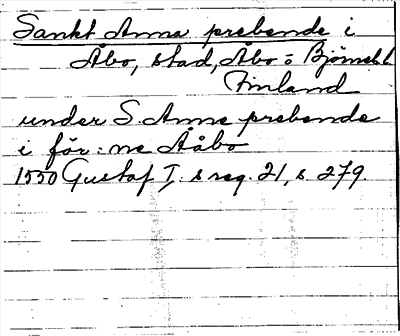 Sankt Anna prebende i
Åbo, stad, Åbo o Björneb. l
Finland
under S. Anne prebende
i för: ne Åbo
1550 Gustaf I. s reg. 21, s. 279.